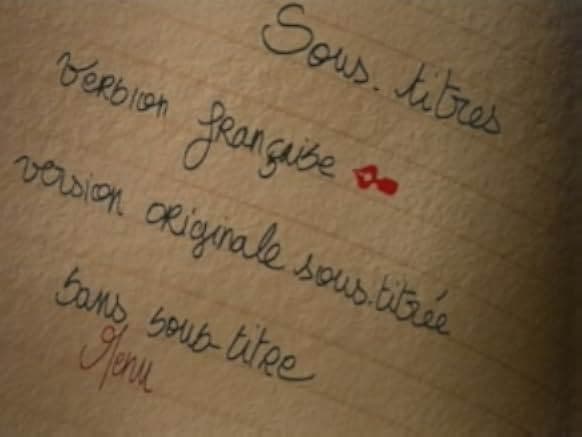 Sous-titres
version française
version originale sous-titrée
sans sous-titre
Menu